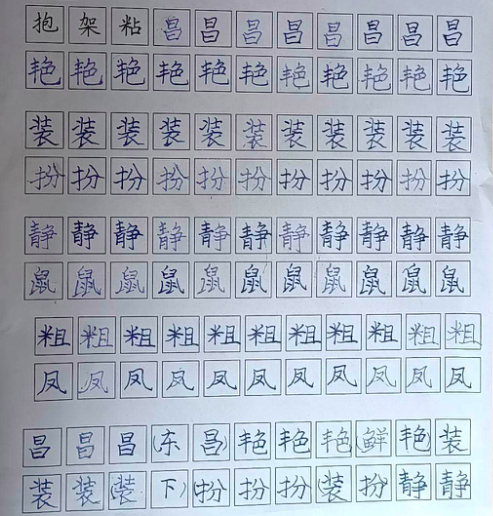 抱架粘昌昌昌昌昌昌昌昌
艳艳艳艳艳艳艳艳艳艳艳
装装装装装装装装装装装
扮扮扮扮扮扮扮扮扮扮扮
静静静静静静静静静静静
鼠鼠鼠鼠鼠鼠鼠鼠鼠鼠鼠
粗粗粗粗粗粗粗粗粗粗粗
凤凤凤凤凤凤凤凤凤凤凤
昌昌昌(东昌)艳艳艳(鲜艳)装
装装(装下)(扮扮扮(装扮)静静